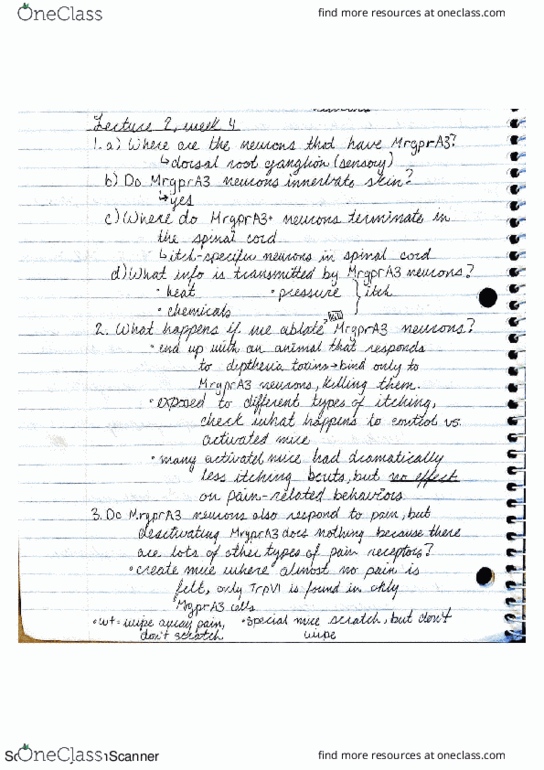 OneClass
find more resources at oneclass.com
Lecture 2, week 4
1. a) Where are the neurons that have MrgprA3?
↳dorsal root ganglion (sensory)
b) Do MrgprA3 neurons innerbate skin?
↳yes
c) Where do MrgprA3+ neurons terminate in
the spinal cord
↳itch-specific neurons in spinal cord
d) What info is transmitted by MrgprA3 neurons?
• heat • pressure } itch
• chemicals
kill
2. What happens if we ablate MrgprA3 neurons?
• end up with an animal that responds
to diptheria toxins→bind only to
MrgprA3 neurons, killing them.
• exposed to different types of itching,
check what happens to control vs.
activated mice
• many activated mice had dramatically
less itching bouts, but no effect
on pain-related behaviors
3. Do MrgprA3 neurons also respond to pain, but
deactivating MrgprA3 does nothing because there
are lots of other types of pain receptors?
• create mice where almost no pain is
felt, only TrpV1 is found in only
MrgprA3 cells
• wt = wipe away pain, • special mice scratch, but don't
don't scratch wipe
OneClass
Scanner
find more resources at oneclass.com